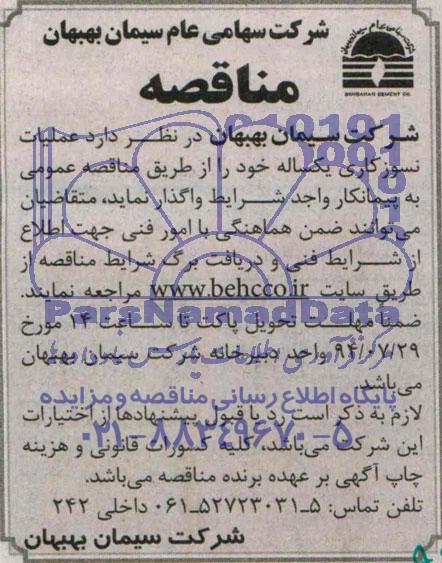 شرکت سهامی عام سیمان بهبهان
BEHBAHAN CEMENT CO.
مناقصه
شرکت سیمان بهبهان در نظر دارد عملیات
نسوزکاری یکساله خود را از طریق مناقصه عمومی
به پیمانکار واجد شرایط واگذار نماید، متقاضیان
می‌توانند ضمن هماهنگی با امور فنی جهت اطلاع
از شرایط فنی و دریافت برگ شرایط مناقصه از
طریق سایت www.behcco.ir مراجعه نمایند.
ParsNamadData
ضمنا مهلت تحویل پاکت تا ساعت ۱۴ مورخ
۹۴/۰۷/۲۹ واحد دبیرخانه شرکت سیمان بهبهان
می‌باشد.
پایگاه اطلاع رسانی مناقصه و مزایده
لازم به ذکر است رد یا قبول پیشنهادها از اختیارات
۰۲۱-۸۸۳۴۹۶۷۰-۵
این شرکت می‌باشد، کلیه کسورات قانونی و هزینه
چاپ آگهی بر عهده برنده مناقصه می‌باشد.
تلفن تماس: ۵-۵۲۷۲۳۰۳۱-۰۶۱ داخلی ۲۴۲
شرکت سیمان بهبهان